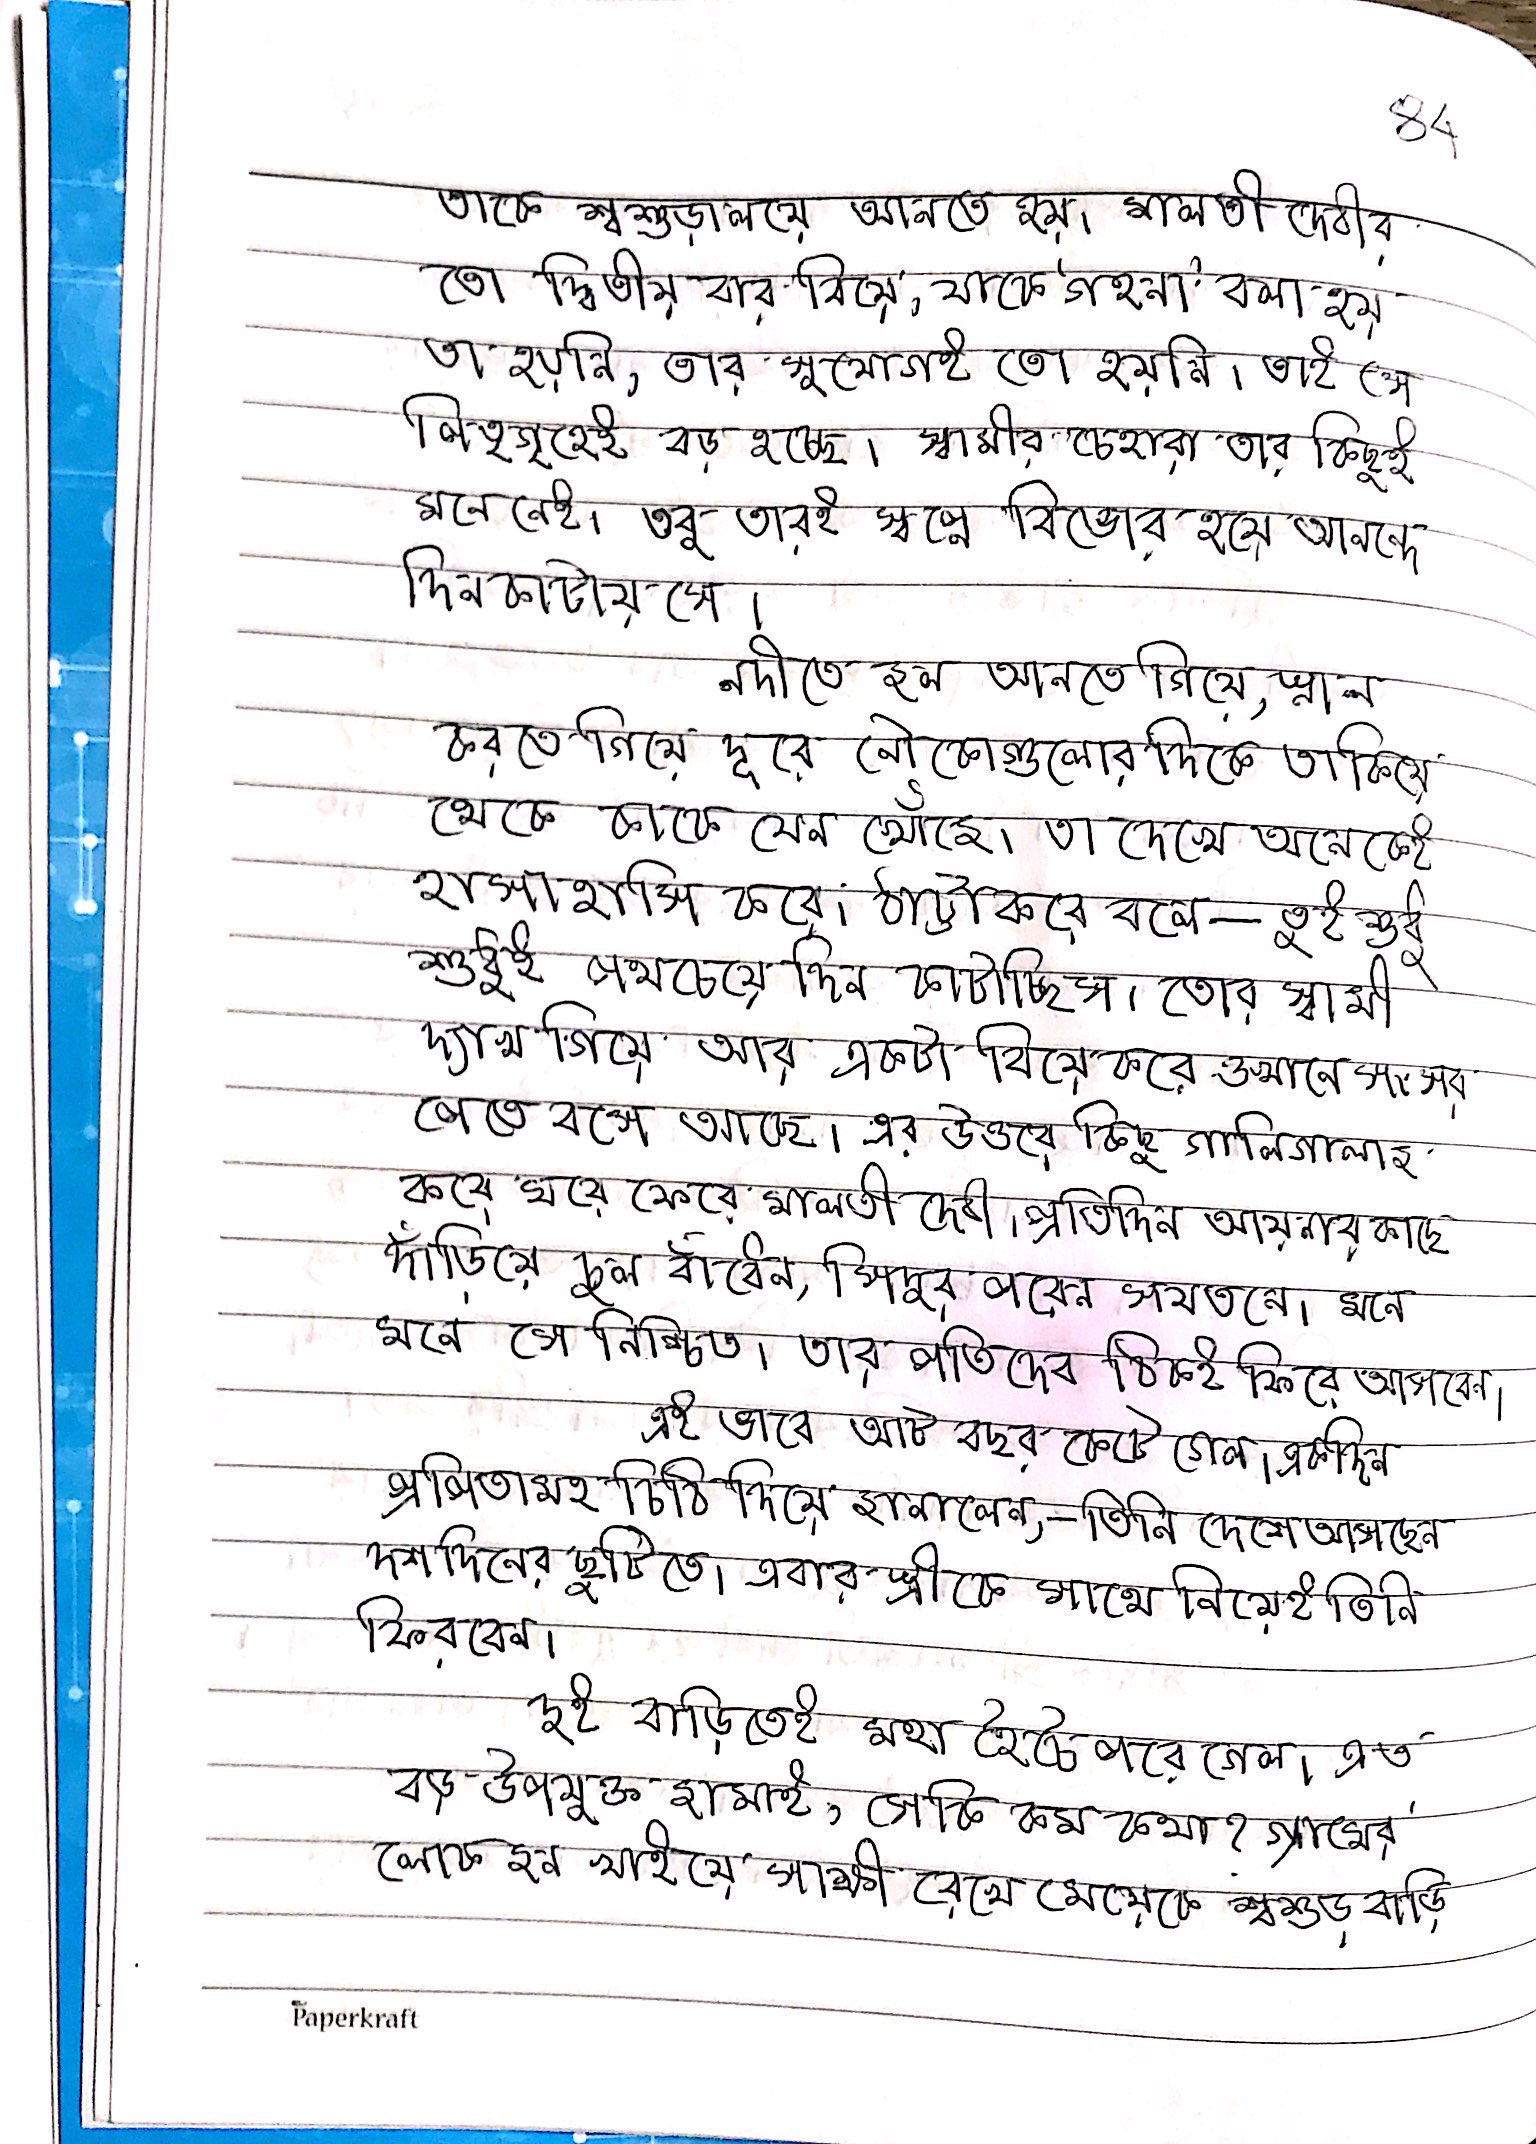 84
তাকে শ্বশুড়ালয়ে আনতে হয়। মালতী দেবীর
তো দ্বিতীয় বার বিয়ে, যাকে 'গহনা' বলা হয়
তা হয়নি, তার সুযোগই তো হয়নি। তাই সে
পিতৃগৃহেই বড় হচ্ছে। স্বামীর চেহারা তার কিছুই
মনে নেই। তবু তারই স্বপ্নে বিভোর হয়ে আনন্দে
দিন কাটায় সে।
নদীতে জল আনতে গিয়ে, স্নান
করতে গিয়ে দূরে নৌকোগুলোর দিকে তাকিয়ে
থেকে কাকে যেন খোঁজে। তা দেখে অনেকেই
হাসাহাসি করে। ঠাট্টা করে বলে— তুই শুধু
শুধুই পথচেয়ে দিন কাটাচ্ছিস। তোর স্বামী
দ্যাখ গিয়ে আর একটা বিয়ে করে ওখানে সংসর
পেতে বসে আছে। এর উত্তরে কিছু গালিগালাজ
করে ঘরে ফেরে মালতী দেবী। প্রতিদিন আয়নার কাছে
দাঁড়িয়ে চুল বাঁধেন, সিদুর পরেন সযতনে। মনে
মনে সে নিশ্চিত। তার পতিদেব ঠিকই ফিরে আসবেন।
এই ভাবে আট বছর কেটে গেল। একদিন
প্রপিতামহ চিঠি দিয়ে জানালেন,— তিনি দেশে আসছেন
দশ দিনের ছুটিতে। এবার স্ত্রীকে সাথে নিয়েই তিনি
ফিরবেন।
দুই বাড়িতেই মহা হৈচৈ পরে গেল। এত
বড় উপযুক্ত জামাই, সেকি কম কথা? গ্রামের
লোক জন খাইয়ে সাক্ষী রেখে মেয়েকে শ্বশুড় বাড়ি
Paperkraft